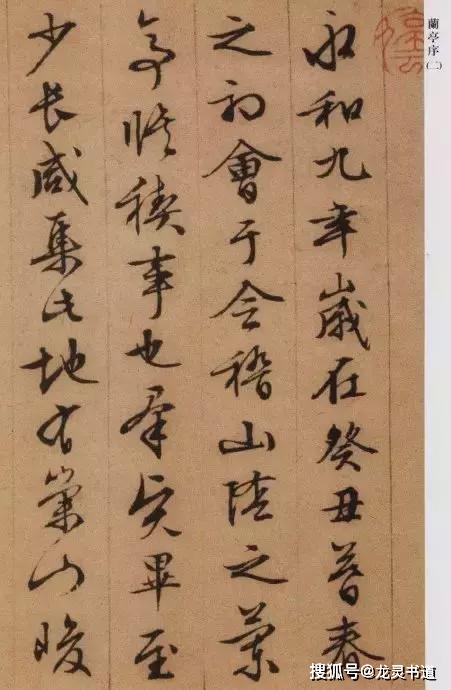 蘭亭序(二)
永和九年歲在癸丑暮春
之初會于会稽山陰之蘭
亭脩禊事也羣賢畢至
少長咸集此地有崇山峻
搜狐号@龙灵书道